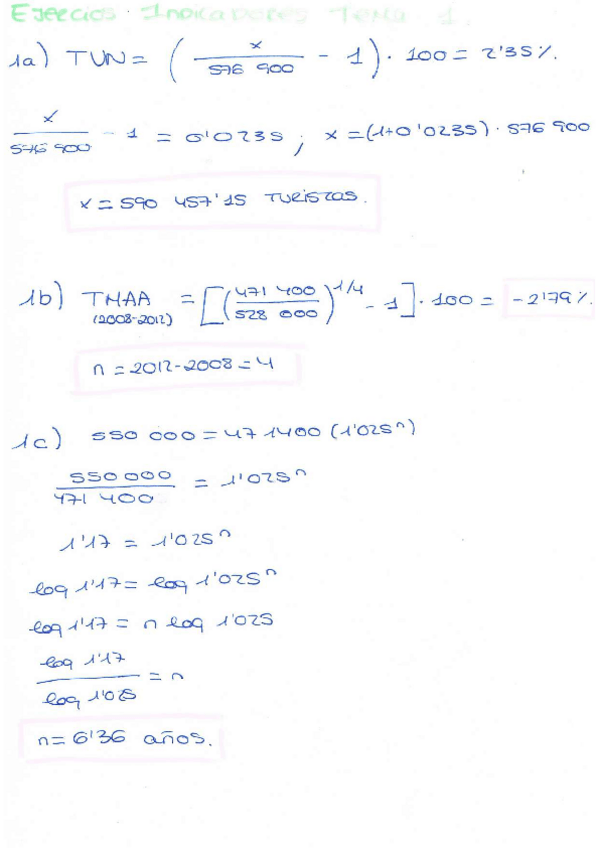 Ejercicios Indicadores Tema 1.
1a) TUN = ( x / 576 900 - 1 ) · 100 = 2'35 %.
x / 576 900 - 1 = 0'0235 ; x = (1+0'0235) · 576 900
x = 590 457'15 TURISTAS.
1b) TMAA (2008-2012) = [ ( 471 400 / 528 000 )^1/4 - 1 ] · 100 = -2'79 %.
n = 2012-2008 = 4
1c) 550 000 = 471400 (1'025^n)
550 000 / 471 400 = 1'025^n
1'17 = 1'025^n
log 1'17 = log 1'025^n
log 1'17 = n log 1'025
log 1'17 / log 1'025 = n
n = 6'36 años.